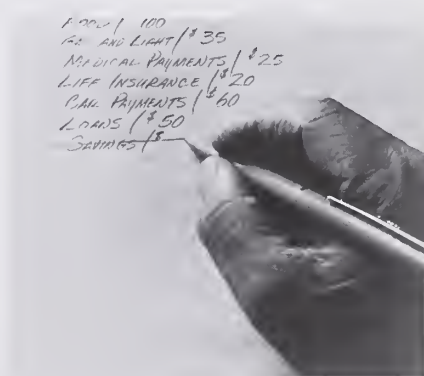 100
AND LIGHT / $ 35
MEDICAL PAYMENTS / $ 25
LIFE INSURANCE / $ 20
CAR PAYMENTS / $ 60
LOANS / $ 50
SAVINGS / $